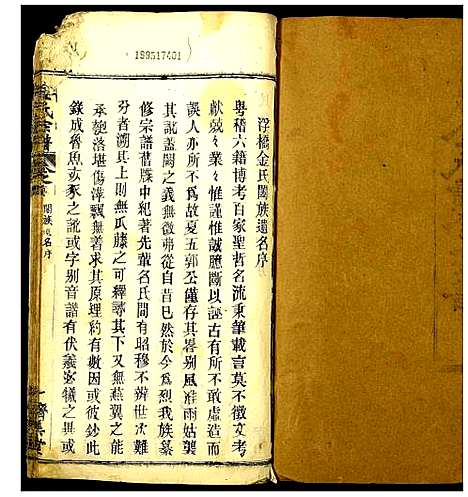 199517401
浮橋金氏闕族遺名序
粤稽六籍博考百家聖哲名流秉筆載言莫不徵文考
獻兢兢業業惟謹惟誠臆斷以誣古有所不敢虛造而
誤人亦所不爲故夏五郭公僅存其畧別風淮雨姑襲
其訛蓋闕之義無微弗從自昔已然於今爲烈我族纂
修宗譜舊牒中紀著先輩名氏間有昭穆不辨世次難
分者溯其上則無瓜藤之可釋尋其下又無燕翼之能
承飽落堪傷漳飄無着求其原理約有數因或彼鈔此
錄成魯魚亥豕之訛或字别音諧有伏羲宓犧之異或
氏宗譜
闕族遺名序
一
濟美堂